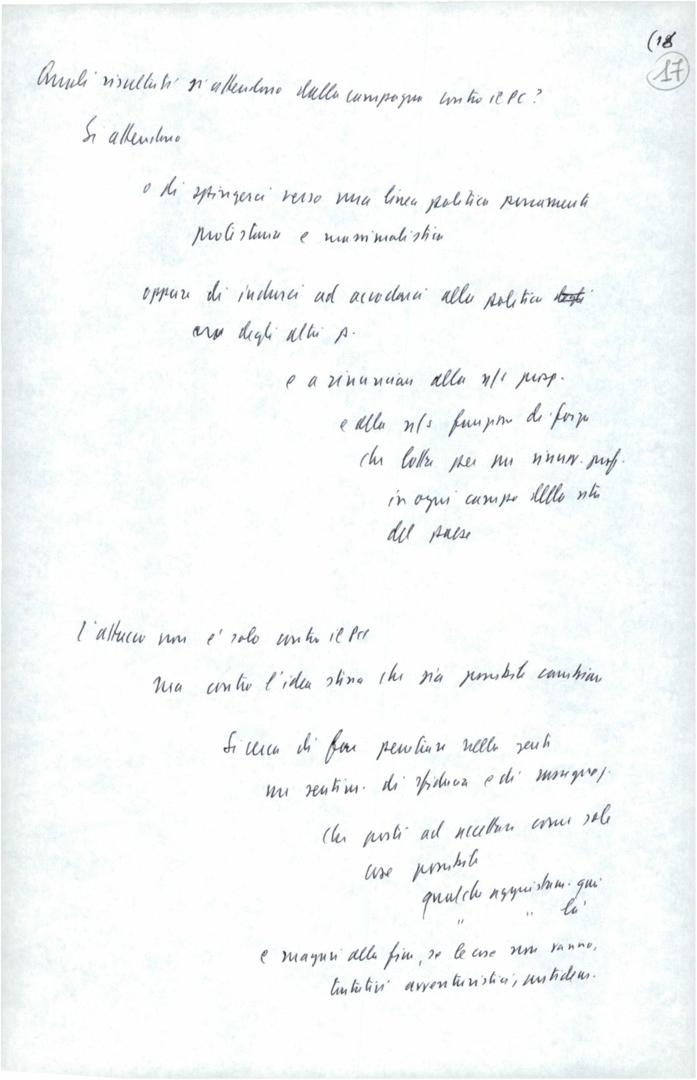 (18
17
Quali risultati si attendono dalla campagna contro il PC?
Si attendono
o di spingerci verso una linea politica puramente
protestaria e massimalistica
oppure di indurci ad accodarci alla politica degli
degli altri p.
e a rinunciare alla n/s prosp.
e alla n/s funzione di forza
che lotta per un rinnov. prof.
in ogni campo della vita
del paese
L'attacco non è solo contro il PCI
ma contro l'idea stessa che sia possibile cambiare
Si cerca di far penetrare nella gente
un sentim. di sfiducia e di rassegnaz.
che porti ad accettare come sole
cose possibili
qualche aggiustam. qui
" " là
e magari alla fine, se le cose non vanno,
tentativi avventuristici, antidem.